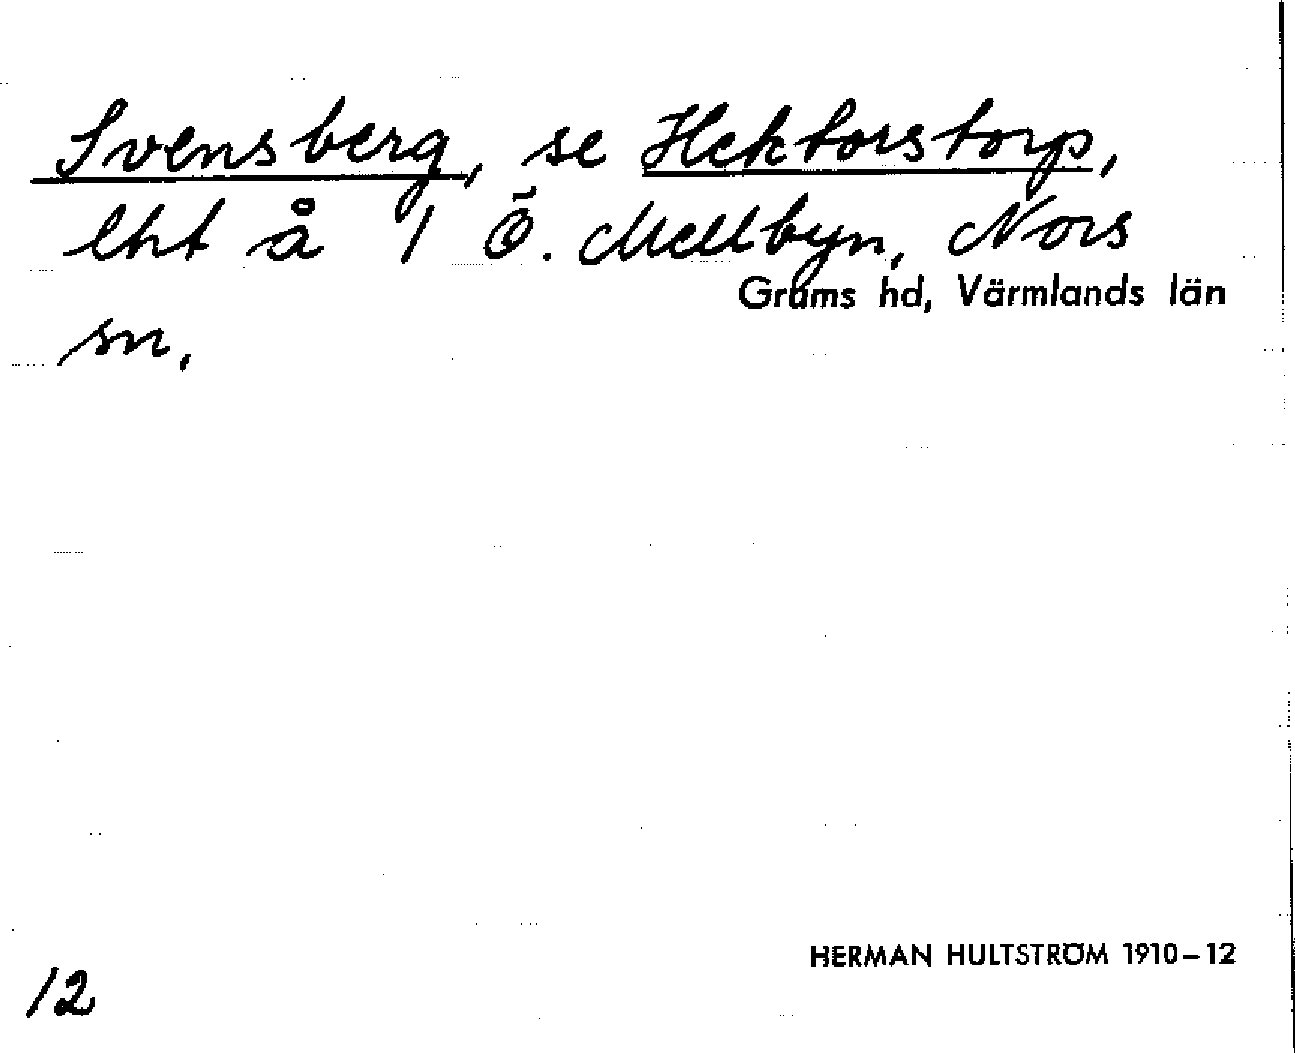 Svensberg, se Hektorstorp,
lht å 1 Ö. Mellbyn, Nors
Grums hd, Värmlands län
sn,
HERMAN HULTSTRÖM 1910–12
12